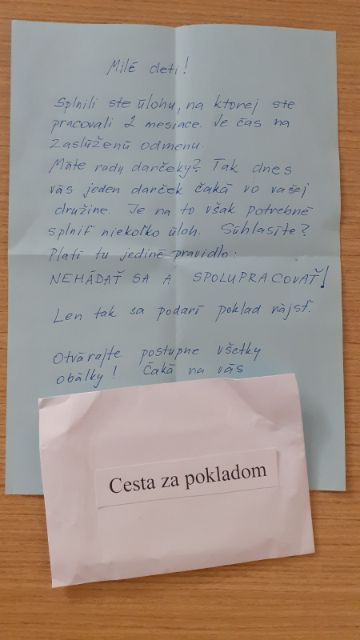 Milé deti!
Splnili ste úlohu, na ktorej ste
pracovali 2 mesiace. Je čas na
zaslúženú odmenu.
Máte rady darčeky? Tak dnes
vás jeden darček čaká vo vašej
družine. Je na to však potrebné
splniť niekoľko úloh. Súhlasíte?
Platí tu jediné pravidlo:
NEHÁDAŤ SA A SPOLUPRACOVAŤ!
Len tak sa podarí poklad nájsť.
Otvárajte postupne všetky
obálky! Čaká na vás
Cesta za pokladom